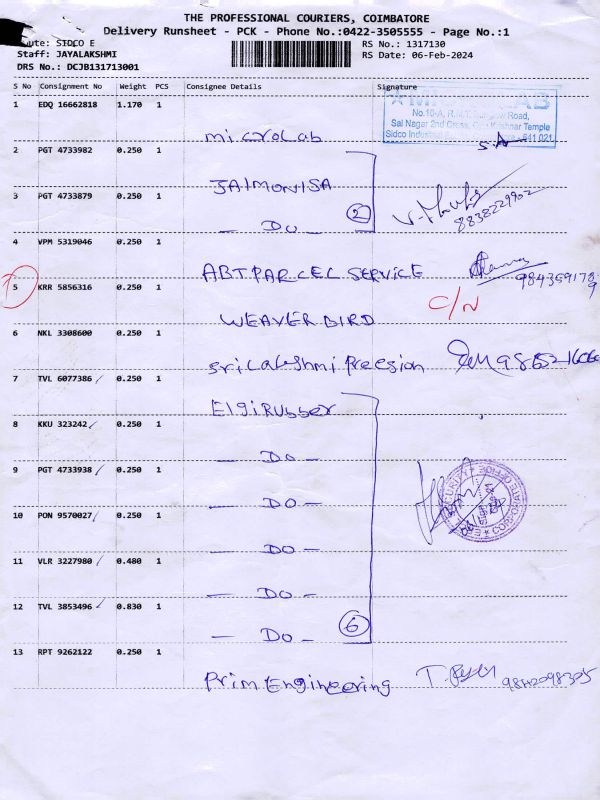 THE PROFESSIONAL COURIERS, COIMBATORE
Delivery Runsheet - PCK - Phone No.:0422-3505555 - Page No.:1
ute: SIDCO E
RS No.: 1317130
Staff: JAYALAKSHMI
RS Date: 06-Feb-2024
DRS No.: DCJB131713001
S No Consignment No Weight PCS Consignee Details Signature
1 EDQ 16662818 1.170 1
LAB
No.10-A, Road,
Sai Nagar 2nd Cross, Temple
Sidco 641 021
microLab
2 PGT 4733982 0.250 1
JAIMONISA
3 PGT 4733879 0.250 1
— Do — 2 8838229902
4 VPM 5319046 0.250 1
ABT PARCEL SERVICE
5 KRR 5856316 0.250 1
C/N
WEAVER BIRD
6 NKL 3308600 0.250 1
Sri Lakshmi Precsion
7 TVL 6077386 0.250 1
Elgi Rubber
8 KKU 323242 0.250 1
— Do —
9 PGT 4733938 0.250 1
— Do —
10 PON 9570027 0.250 1
— Do —
11 VLR 3227980 0.480 1
— Do —
12 TVL 3853496 0.830 1
— Do — 6
13 RPT 9262122 0.250 1
Prim Engineering 9842098305